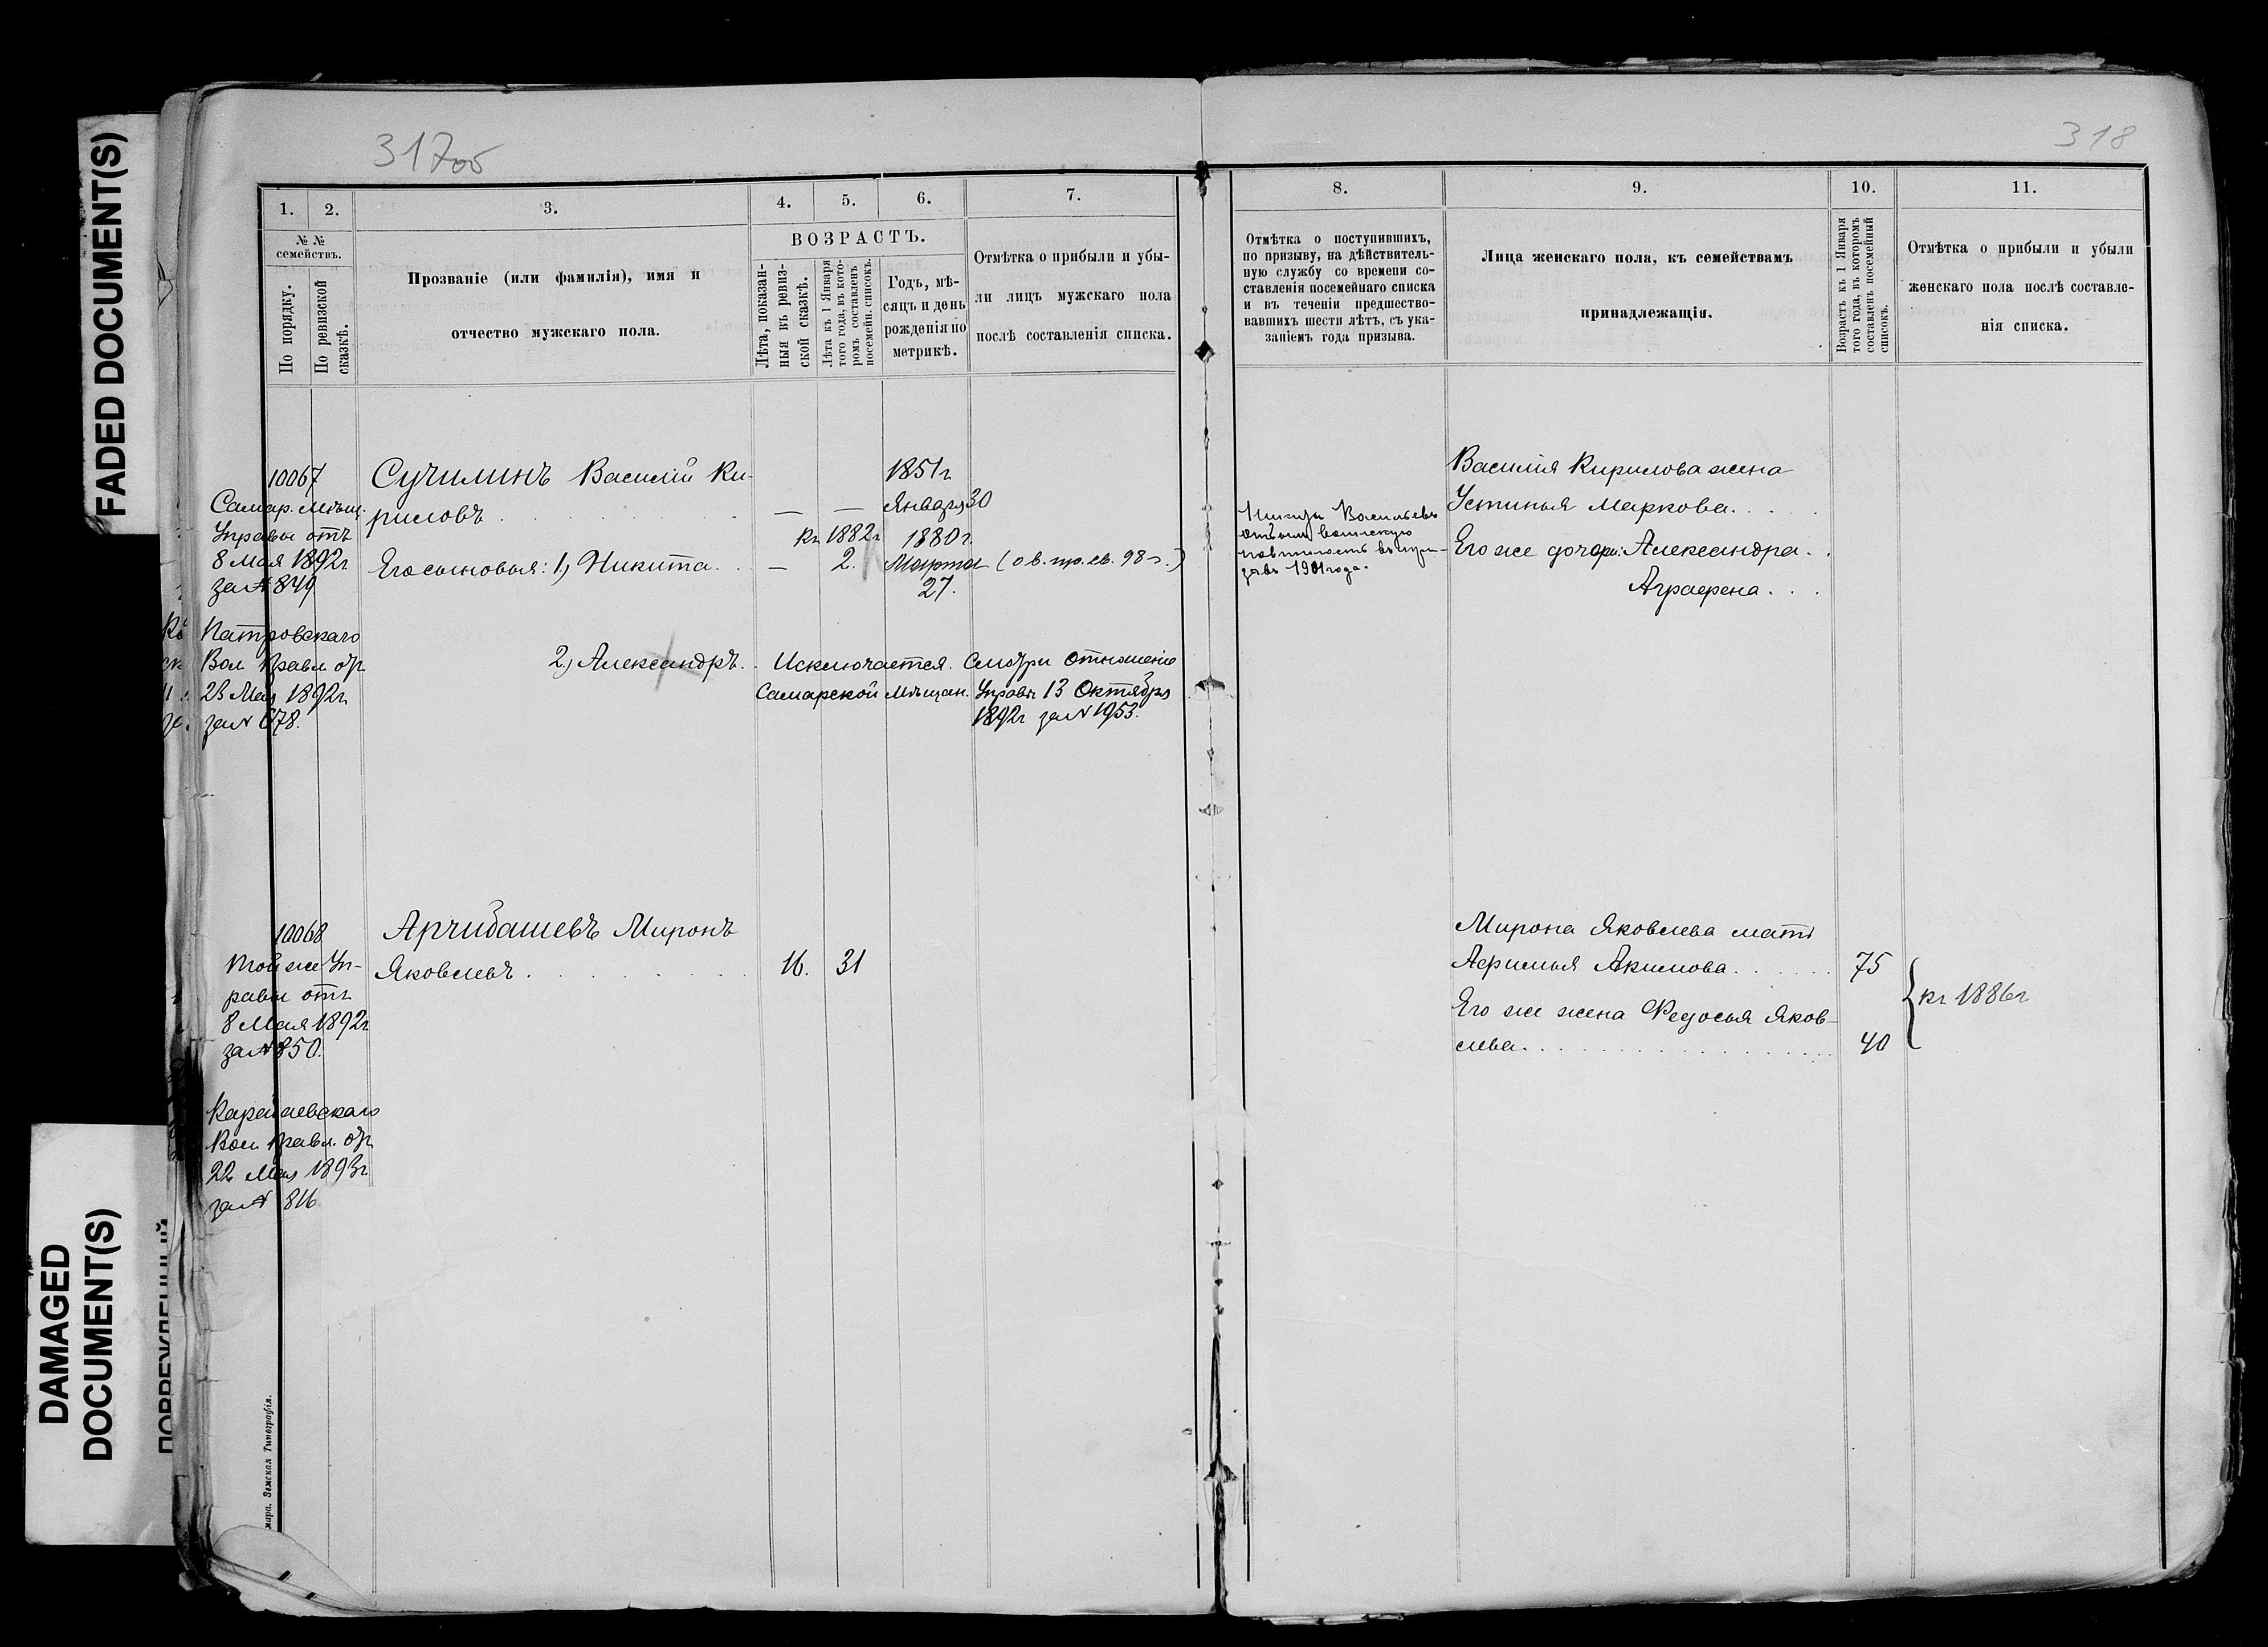 317об
318
FADED DOCUMENT(S)
DAMAGED
DOCUMENT(S)
1.
2.
3.
4.
5.
6.
7.
№ №
семействъ.
По порядку.
По ревизской
сказкѣ.
Прозваніе (или фамилія), имя и
отчество мужскаго пола.
ВОЗРАСТЪ.
Лѣта, показан-
ныя въ ревиз-
ской сказкѣ.
Лѣта къ 1 Января
того года, въ кото-
ромъ составленъ
посемейн. списокъ.
Годъ, мѣ-
сяцъ и день
рожденія по
метрикѣ.
Отмѣтка о прибыли и убы-
ли лицъ мужскаго пола
послѣ составленія списка.
10067
Самар. Мѣщ.
Управы отъ
8 Мая 1892г
за № 849
Сучилинъ Василій Ки-
риловъ
— —
1851г
Января 30
Его сыновья: 1, Никита.
—
къ 1882г
2.
1880г.
Марта
27.
(о в. пр. св. 98 г.)
Вол Правл. отъ
23 Мая 1892г
за № 678.
2, Александръ.
Исключается. Смотри отношеніе
Самарской Мѣщан. Управы 13 Октября
1892г за № 1953.
10068
Той же Уп-
равы отъ
8 Мая 1892г
за № 850.
Арчибашевъ Миронъ
Яковлевъ
16.
31
Вол Правл. отъ
22 Мая 1893г
за № 816
мара. Земская Типографія.
8.
9.
10.
11.
Отмѣтка о поступившихъ,
по призыву, на дѣйствитель-
ную службу со времени со-
ставленія посемейнаго списка
и въ теченіи предшество-
вавшихъ шести лѣтъ, съ ука-
заніемъ года призыва.
Лица женскаго пола, къ семействамъ
принадлежащія.
Возрастъ къ 1 Января
того года, въ которомъ
составленъ посемейный
списокъ.
Отмѣтка о прибыли и убыли
женскаго пола послѣ составле-
нія списка.
Никита Васильевъ
отбылъ воинскую
повинность въ при-
зывъ 1901 года.
Василія Кирилова жена
Устинья Маркова.
Его же дочери: Александра.
Аграфена.
Мирона Яковлева мать
Афимья Акимова
75
Его же жена Федосья Яков-
лева.
40
къ 1886г